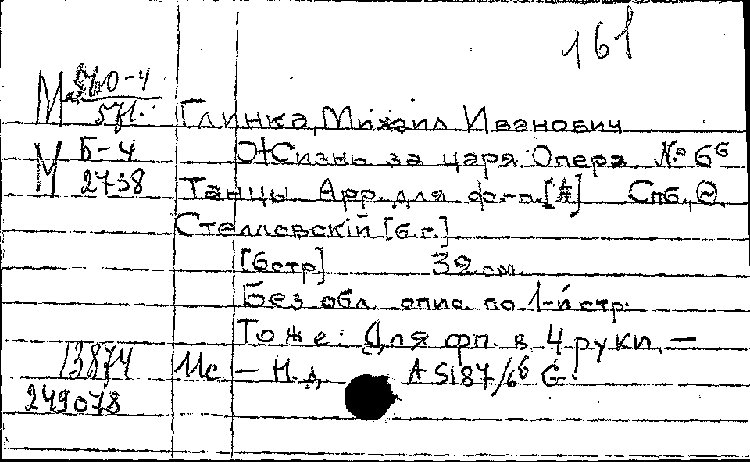 161
М 560-4
571.
Глинка, Михаил Иванович
М Б-4
2738
Жизнь за царя. Опера. № 6б
Танцы. Арр. для ф.-п. Спб., Ѳ.
Стелловскій [б.г.]
[6стр] 32 см.
Без обл. опис. по 1-й стр.
То же: Для фп. в 4 руки. —
13874 Мс — Н.д. А S187/6б G.
249078